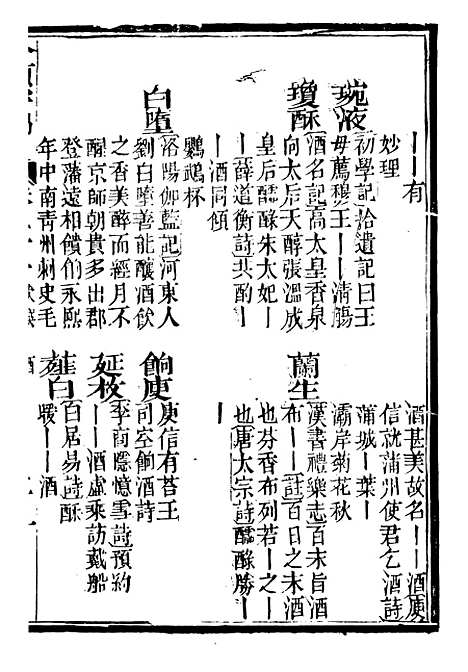 ——有
妙理
琬液
初學記拾遺記曰王
母薦穆王——清觴
瓊酥
酒名記高太皇香泉
向太后天醇張溫成
皇后醽醁朱太妃—
—薛道衡詩共酌—
—酒同傾
鸚鵡杯
白墮
洛陽伽藍記河東人
劉白墮善能釀酒飲
之香美醉而經月不
醒京師朝貴多出郡
登藩遠相饋仍永熙
年中南青州刺史毛
酒甚美故名——酒庾
信就蒲州使君乞酒詩
蒲城—葉—
灞岸菊花秋
蘭生
漢書禮樂志百末旨酒
布——註百日之末酒
也芬香布列若—之—
也唐太宗詩醽醁勝—
—
餉庾
庾信有荅王
司空餉酒詩
延枚
李商隱憶雪詩預約
——酒虛乘訪戴船
薤白
白居易詩酥
暖——酒
酒